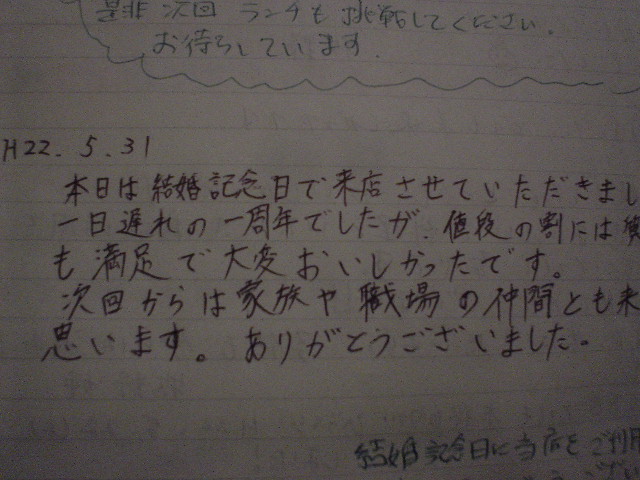 是非 次回 ランチも 挑戦してください。
お待ちしています
H22.5.31
本日は結婚記念日で来店させていただきまし
一日遅れの一周年でしたが、値段の割には
も満足で大変おいしかったです。
次回からは家族や職場の仲間とも来
思います。ありがとうございました。
結婚記念日に当店をご利用